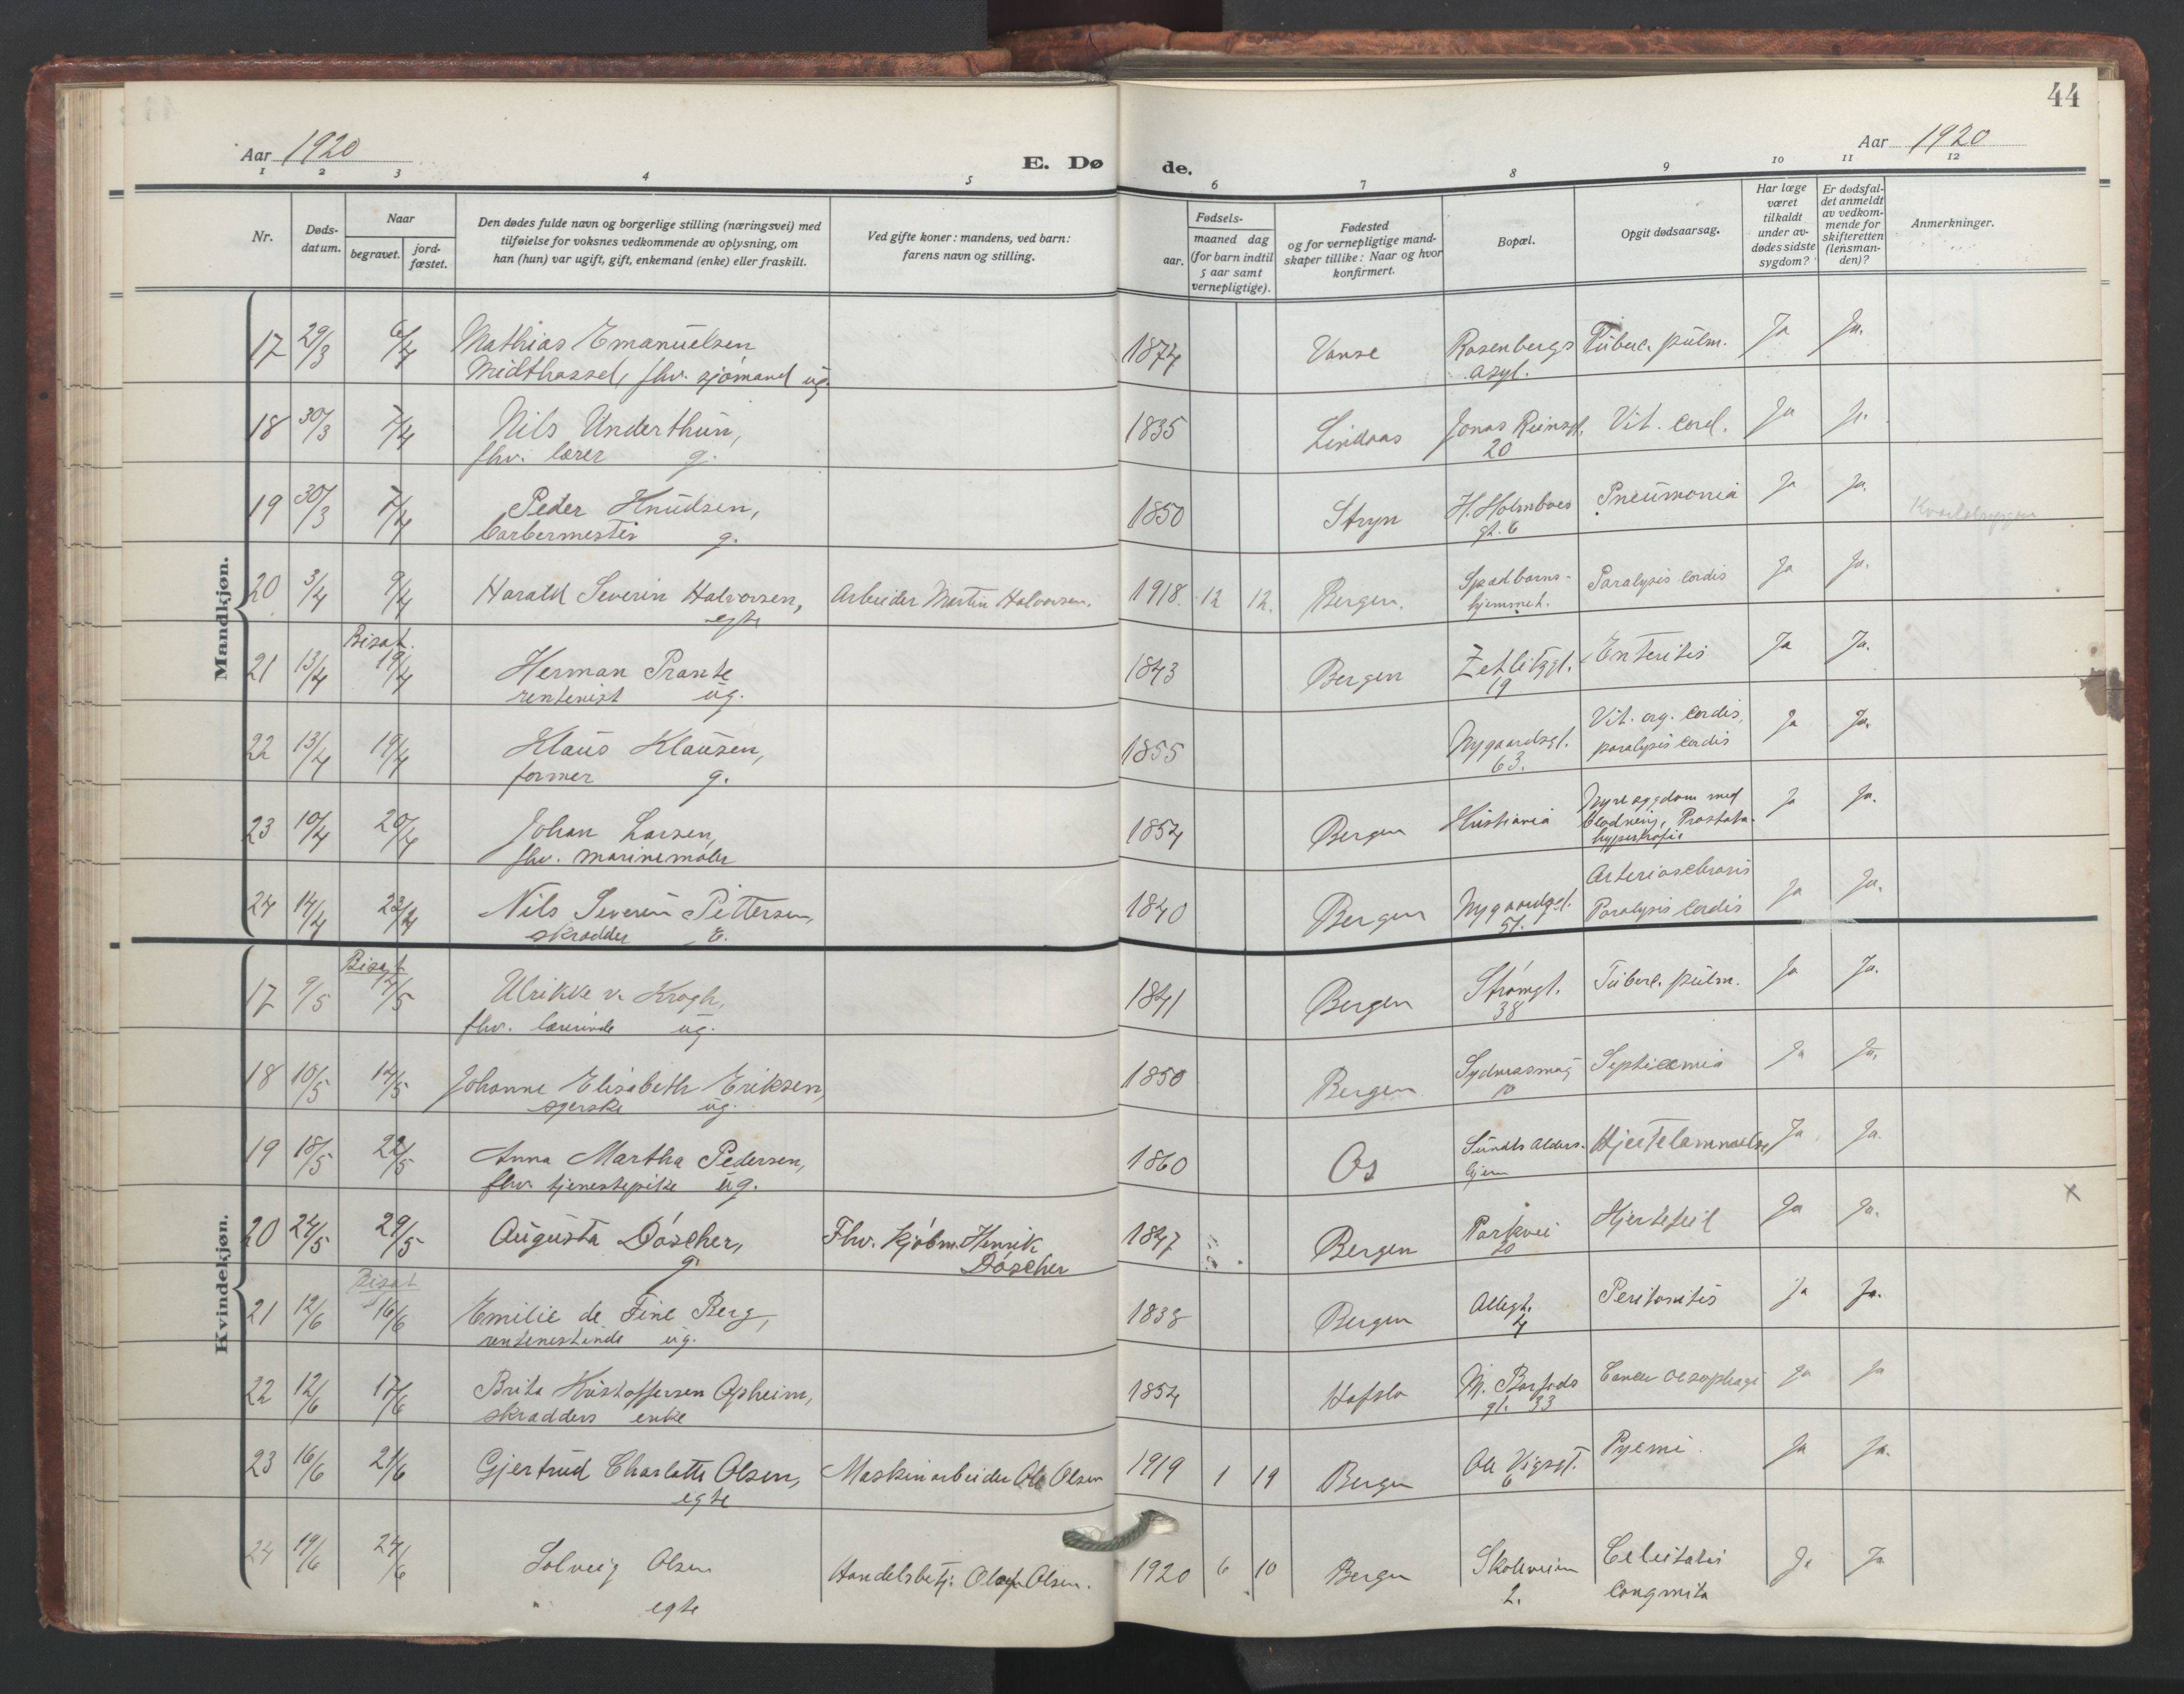 44
Aar 1920
E. Dø
de.
Aar 1920
1 2 3 4 5 6 7 8 9 10 11 12
Nr.
Døds-
datum.
Naar
begravet.
jord-
fæstet.
Den dødes fulde navn og borgerlige stilling (næringsvei) med
tilføielse for voksnes vedkommende av oplysning, om
han (hun) var ugift, gift, enkemand (enke) eller fraskilt.
Ved gifte koner: mandens, ved barn:
farens navn og stilling.
Fødsels-
aar.
maaned dag
(for barn indtil
5 aar samt
vernepligtige).
Fødested
og for vernepligtige mand-
skaper tillike: Naar og hvor
konfirmert.
Bopæl.
Opgit dødsaarsag.
Har læge
været
tilkaldt
under av-
dødes sidste
sygdom?
Er dødsfal-
det anmeldt
av vedkom-
mende for
skifteretten
(lensman-
den)?
Anmerkninger.
Mandkjøn.
17 29/3 6/4 Mathias Emanuelsen 1874 Vanse Rosenbergs Tuberc. pulm. Ja Ja.
Midthassel, fhv. sjømand ug. asyl.
18 30/3 7/4 Nils Underthun, 1835 Lindaas Jonas Reinsgt. Vit. cord. Ja J.
fhv. lærer g. 20
19 30/3 7/4 Peder Knudsen, 1850 Stryn H. Holmboes Pneumonia Ja Ja.
barbermester g. gt. 6
20 3/4 9/4 Harald Severin Halvorsen, Arbeider Martin Halvorsen. 1918. 12 12. Bergen. Spædbarns- Paralysis cordis Ja Ja.
egte hjemmet.
Bisat.
21 13/4 19/4 Herman Prante 1843 Bergen Zetlitzgt. Enteritis Ja Ja.
rentenist ug. 19
22 13/4 19/4 Klaus Klausen, 1855 Nygaardsgt. Vit. org. cordis, Ja Ja.
former g. 63. paralysis cordis
23 10/4 20/4 Johan Larsen, 1854 Bergen Kristiania Nyresygdom med Ja Ja.
fhv. marinemaler blødning, Prostata-
hypertrofie
24 14/4 23/4 Nils Severin Pettersen, 1840 Bergen Nygaardsgt. Arteriosclerosis Ja Ja.
skrædder E. 51. Paralysis cordis
Kvindekjøn.
Bisat
17 9/5 14/5 Ulrikke v. Krogh, 1841 Bergen Strømgt. Tuberc. pulm. Ja Ja.
fhv. lærerinde ug. 38
18 10/5 14/5 Johanne Elisabeth Eriksen, 1850 Bergen Sydnæssmug Septicæmia Ja Ja.
syerske ug. 10
19 18/5 22/5 Anna Martha Pedersen, 1860 Os Sundts Alders- Hjertelammelse Ja Ja.
fhv. tjenestepike ug. hjem
20 24/5 29/5 Augusta Döscher, Fhv. kjøbm. Henrik 1847 Bergen Parkvei Hjertefeil Ja Ja. x
g. Döscher 20
Bisat
21 12/6 16/6 Emilie de Fine Berg, 1838 Bergen Allegt. Peritonitis Ja Ja.
rentenistinde ug. 4
22 12/6 17/6 Brita Kristoffersen Opheim, 1854 Hafslo M. Barfods Cancer oesophagi Ja Ja
skrædders enke gt. 33
23 16/6 21/6 Gjertrud Charlotte Olsen, Maskinarbeider Ole Olsen 1919 1 19 Bergen Ole Vigsgt. Pyemi. Ja Ja.
egte 6
24 19/6 24/6 Solveig Olsen Handelsbetj. Olaf Olsen. 1920 6 10 Bergen Skoleveien Ja Ja
egte 2. congenita